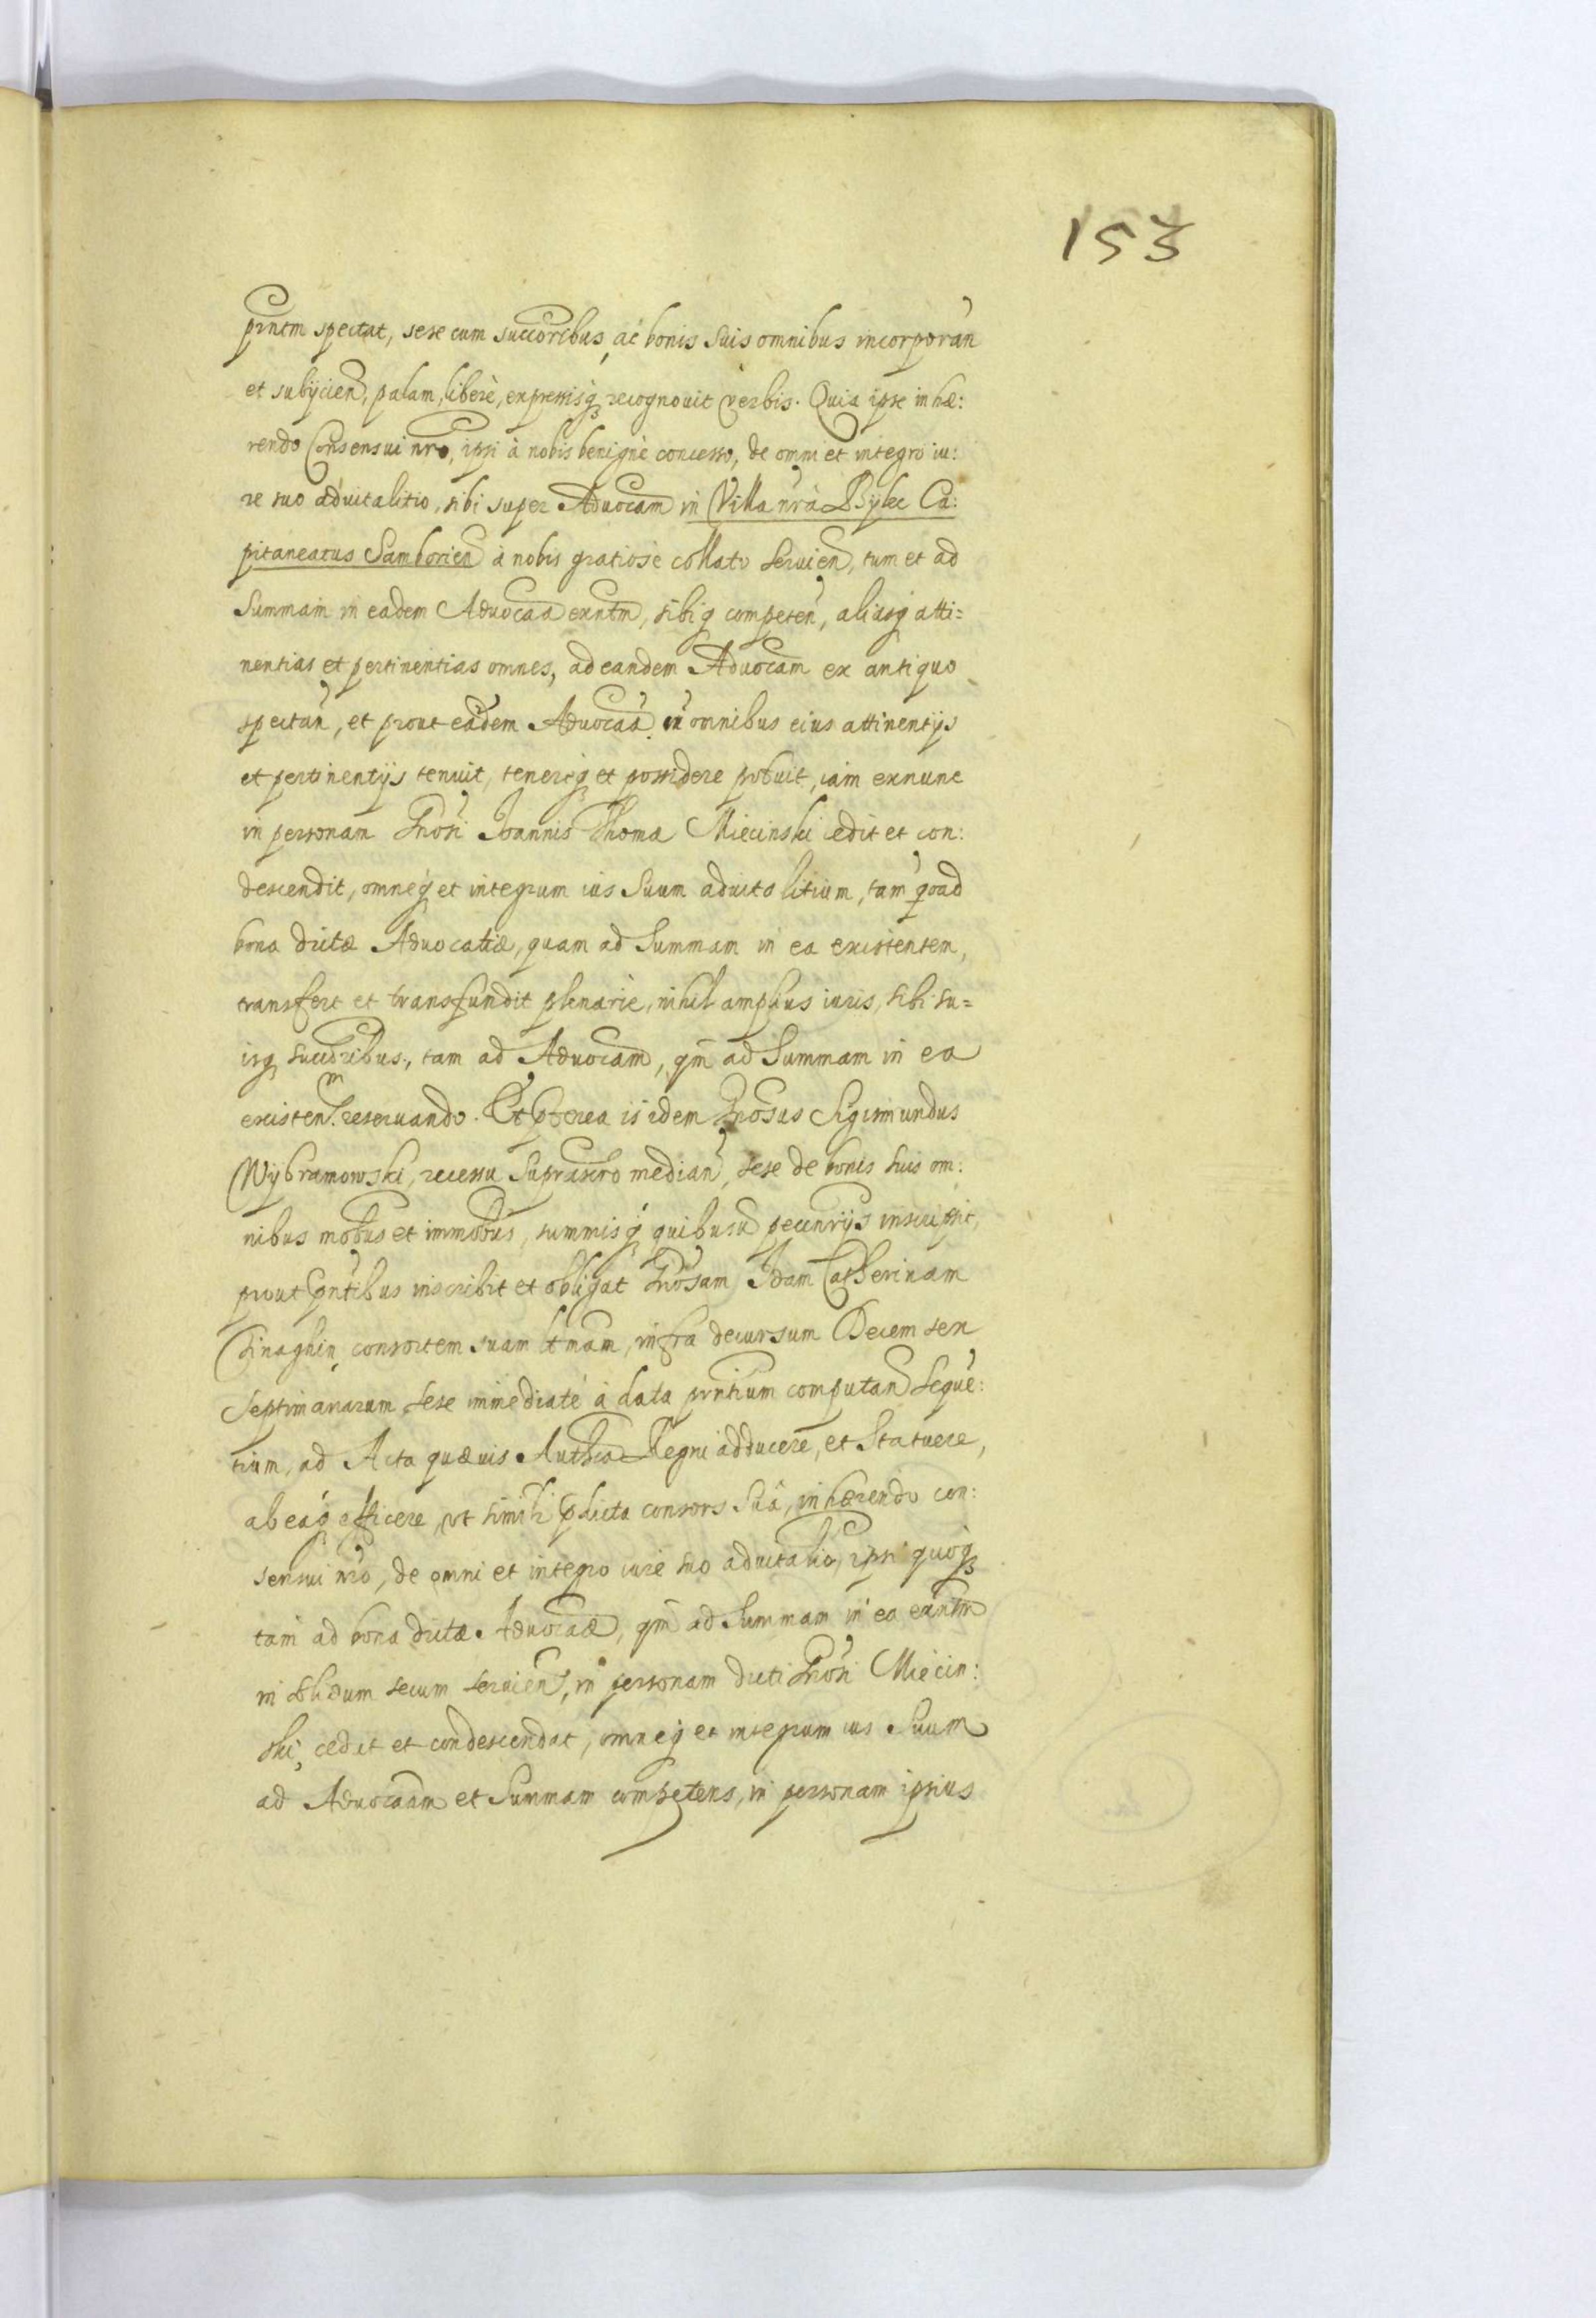 153
prntm spectat, sese cum succoribus, ac bonis suis omnibus incorporan
et subijcien, palam, liberè, expressisq recognovit verbis. Quia ipse inhæ:
rendo Consensui nro, ipsi à nobis benignè concesso, de omni et integro iu:
re suo advitalitio, sibi super Advocam in Villa nra Bylec Ca:
pitaneatus Samborien à nobis gratiosè collato servien, tum et ad
Summam in eadem Advocaa exntm, sibiq competen, aliasq atti=
nentias et pertinentias omnes, ad eandem Advocam ex antiquo
spectan, et prout eadem Advocaa in omnibus eius attinentijs
et pertinentijs tenuit, tenereq et possidere potuit, iam exnunc
in personam Gnosi Joannis Thoma Miecinski cedit et con:
descendit, omneq et integrum ius Suum advitalitium, tam quoad
bona dictæ Advocatiæ, quam ad Summam in ea existentem,
transfert et transfundit plenariè, nihil amplius iuris, sibi su=
isq succoribus, tam ad Advocam, qm ad Summam in ea
existenm reservando. Et pterea is idem Gnosus Sigismundus
Wybramowski, recessu suprascro median, sese de bonis suis om:
nibus mobbus et immobbus, summisq quibusu pecunrijs inscripsit,
prout pntibus inscribit et obligat Gnosam Catherinam
consortem suam ltmam, infra decursum Decem sex
Septimanarum sese immediatè à data pntium computan seque:
tium, ad Acta quævis Authca Regni adducere, et Statuere,
ab eaq efficere, ut simili pdicta consors Sua, inhærendo con:
sensui nro, de omni et integro iure suo advitalio, ipsi quoq
tam ad bona dictæ Advocaæ, qm ad Summam in ea exntm
in solidum secum servien, in personam dicti Gnosi Miecin:
ski, cedat et condescendat, omneq et integrum ius Suum
ad Advocaam et Summam competens, in personam ipsius